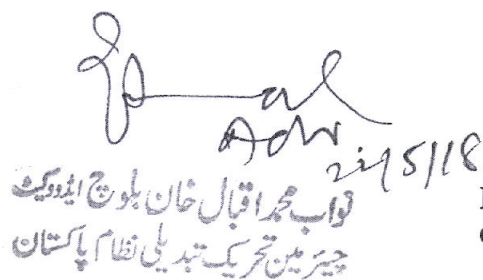 Adv
نواب محمد اقبال خان بلوچ ایڈووکیٹ
چیئرمین تحریک تبدیلی نظام پاکستان